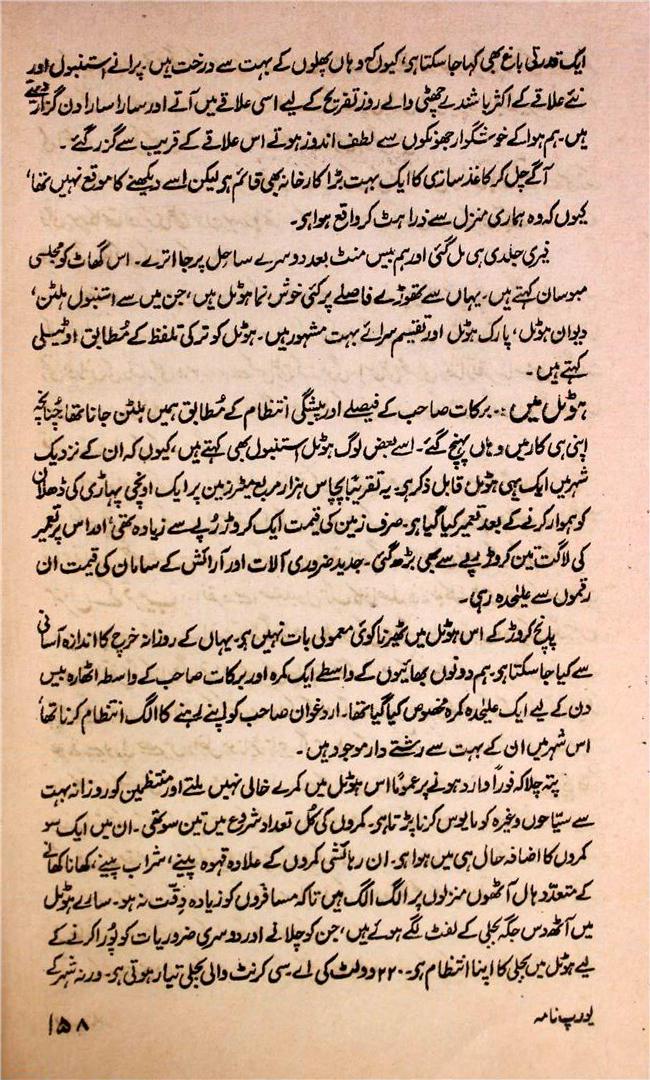 ایک قدرتی باغ بھی کہا جاسکتا ہو، کیوں کہ وہاں پھلوں کے بہت سے درخت ہیں۔ پرانے استنبول اور
نئے علاقے کے اکثر باشندے چھٹی والے روز تفریح کے لیے اسی علاقے میں آتے اور سارا سارا دن گزار دیتے
ہیں۔ ہم ہوا کے خوشگوار جھونکوں سے لطف اندوز ہوتے اس علاقے کے قریب سے گزر گئے۔
آگے چل کر کاغذ سازی کا ایک بہت بڑا کارخانہ بھی قائم ہو لیکن اسے دیکھنے کا موقع نہیں تھا،
کیوں کہ وہ ہماری منزل سے ذرا ہٹ کر واقع ہوا ہو۔
فیری جلدی ہی مل گئی اور ہم بیس منٹ بعد دوسرے ساحل پر جا اترے۔ اس گھاٹ کو مجلسی
مبوسان کہتے ہیں۔ یہاں سے تھوڑے فاصلے پر کئی خوش نما ہوٹل ہیں، جن میں سے استنبول ہلٹن،
دیوان ہوٹل، پارک ہوٹل اور تقسیم سرائے بہت مشہور ہیں۔ ہوٹل کو ترکی تلفظ کے مُطابق اوٹیلی
کہتے ہیں۔
ہوٹل میں:۔ برکات صاحب کے فیصلے اور پیشگی انتظام کے مُطابق ہمیں ہلٹن جانا تھا چُنانچہ
اپنی ہی کار میں وہاں پہنچ گئے۔ اسے بعض لوگ ہوٹل استنبول بھی کہتے ہیں، کیوں کہ ان کے نزدیک
شہر میں ایک یہی ہوٹل قابل ذکر ہو۔ یہ تقریباً پچاس ہزار مربع میٹر زمین پر ایک اونچی پہاڑی کی ڈھلان
کو ہموار کرنے کے بعد تعمیر کیا گیا ہو۔ صرف زمین کی قیمت ایک کروڑ رُپے سے زیادہ تھی، اور اس پر تعمیر
کی لاگت تین کروڑ رپے سے بھی بڑھ گئی۔ جدید ضروری آلات اور آرائش کے سامان کی قیمت ان
رقموں سے علیٰحدہ رہی۔
پانچ کروڑ کے اس ہوٹل میں ٹھیرنا کوئی معمولی بات نہیں ہو۔ یہاں کے روزانہ خرچ کا اندازہ آسانی
سے کیا جاسکتا ہو۔ ہم دونوں بھائیوں کے واسطے ایک کمرہ اور برکات صاحب کے واسطہ اٹھارہ بیس
دن کے لیے ایک علیٰحدہ کمرہ مخصوص کیا گیا تھا۔ اردغوان صاحب کو اپنے رہنے کا الگ انتظام کرنا تھا،
اس شہر میں ان کے بہت سے رشتے دار موجود ہیں۔
پتہ چلا کہ فوراً وارد ہونے پر عموماً اس ہوٹل میں کمرے خالی نہیں ملتے اور منتظمین کو روزانہ بہت
سے سیّاحوں وغیرہ کو مایوس کرنا پڑتا ہو۔ کمروں کی کُل تعداد شروع میں تین سو تھی۔ ان میں ایک سو
کمروں کا اضافہ حال ہی میں ہوا ہو۔ ان رہائشی کمروں کے علاوہ قہوہ پینے، شراب پینے، کھانا کھانے
کے متعدّد ہال آٹھوں منزلوں پر الگ الگ ہیں تاکہ مسافروں کو زیادہ دِقّت نہ ہو۔ سارے ہوٹل
میں آٹھ دس جگہ بجلی کے لفٹ لگے ہوئے ہیں، جن کو چلانے اور دوسری ضروریات کو پُورا کرنے کے
لیے ہوٹل میں بجلی کا اپنا انتظام ہو۔ ۲۲۰ وولٹ کی اے سی کرنٹ والی بجلی تیار ہوتی ہو۔ ورنہ شہر کے
یورپ نامہ
۱۵۸